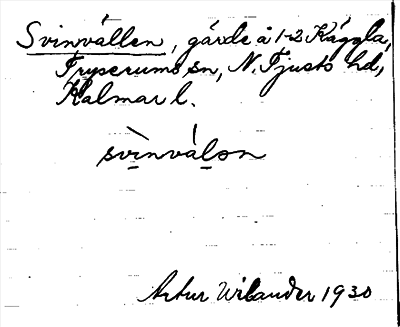 Svinvållen, gärde å 1-2 Käggla,
Fryserums sn, N. Tjusts hd,
Kalmar l.
svìnválon
Artur Wilander 1930